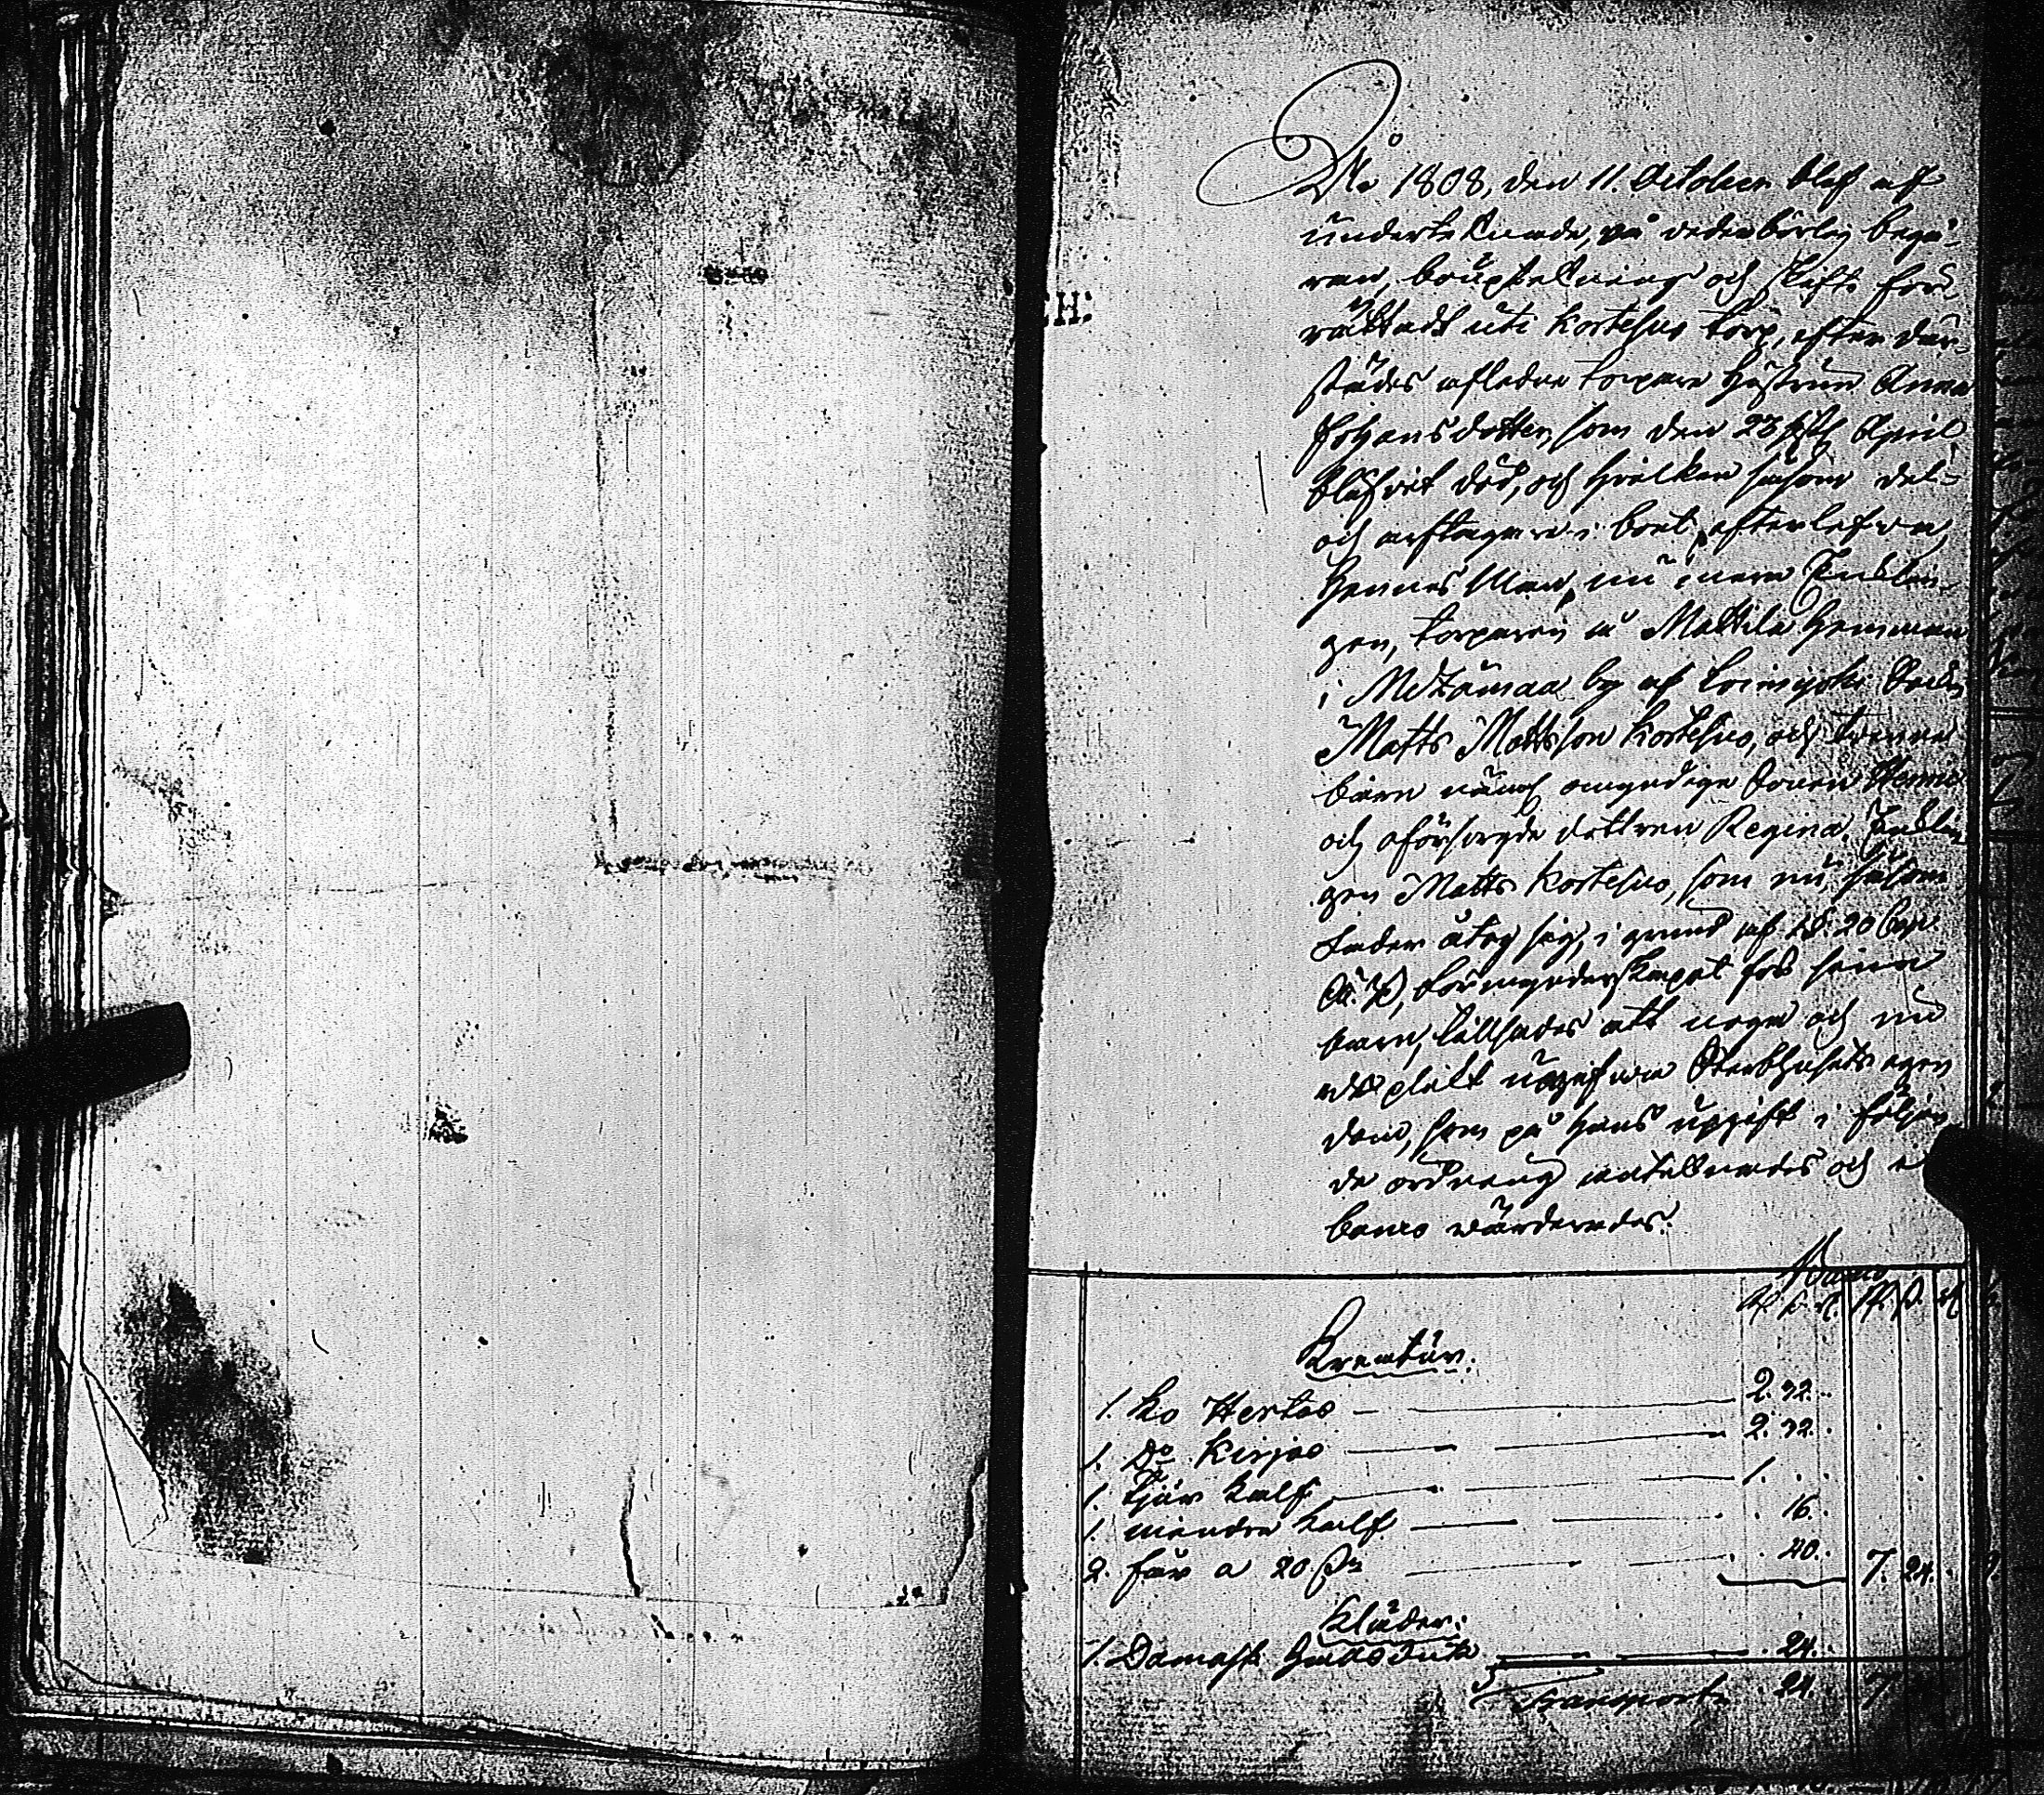 :H:
År 1808, den 11. October blef af
undertecknade, på vederbörlig begä-
ran, bouptekning och skifte för-
rättadt uti Kortesuo torp, efter där-
städes afledne torpare hustrun Anna
Johansdotter, som den 23 sistl. April
blifvit död, och hvilken såsom del-
och arftagare i boet efterlefva,
hennes Man, nu mera Enklin-
gen, torparen å Mattila hemman
i Metzämaa by af Loimijoki Sockn
Matts Mattsson Kortesuo, och tvenne
barn näml. omyndige Sonen Henric
och oförsörgde dottren Regina. Enklin-
gen Matts Kortesuo, som nu såsom
fader åtog sig, i grund af 18. 20 Cap.
Ä. B, förmynderskapet för sina
barn, tillsades att noga och
upgifva Sterbhusets egen
dom, som på hans upgift i följan
de ordning antecknades och
banco värderades.
Banco
Kreatur:
1. Ko Hertas — 2. 32.
1. Do Kirjas — 2. 32.
1. tjur kalf — 1. . .
1. mindre kalf — . 16.
2. får a 20 s — . 40. 7. 24.
Kläder:
1. Damask halsduk — . 24.
Transport . 24. 7